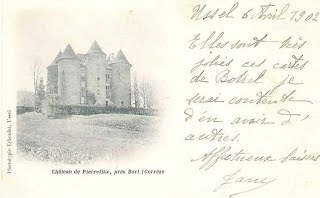 Ussel 6 Avril 1902
Elles sont très
jolies ces cartes
de Bottel je
serai contente
d'en avoir d'
autres.
Affectueux baisers
Jane
Château de Pierrefitte, près Bort (Corrèze
Phototypie Eyboulet, Ussel